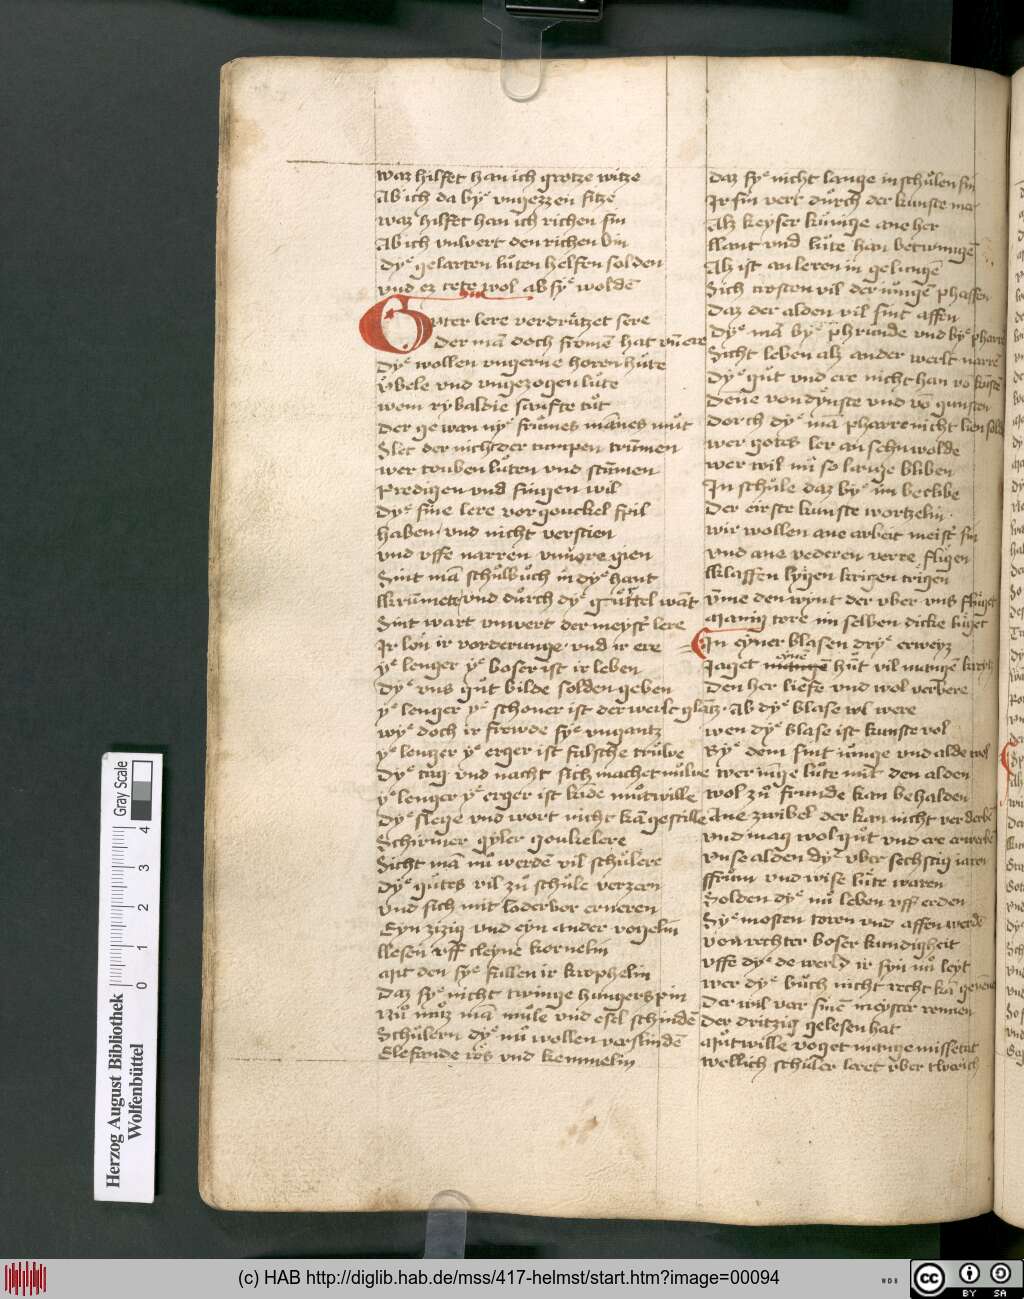 waz hilfet han ich grotze witze
Ab ich da by vngezzen sitze
waz hilfet han ich richen sin
Ab ich vnwert den richen bin
dye gelarten lůten helfen solden
vnd ez tete wol ab sye woldē
Gvter lere verdrůtzet sere
Der mā doch fromē hat vn̄ ere
dye wollen vngerne horen hůte
Vbele vnd vngezogen lůte
wem rybaldie sanfte tůt
der gewan nye frůmes mānes můt
Slet der nicht der tumpen trum̄en
wer touben lůten vnd stum̄en
Predigen vnd singen wil
dye sine lere vor gouckel spil
haben vnd nicht verstien
vnd vffe narren gien
Sint mā schůlbůch in dye hant
krummete vnd důrch dye gůrtel want
Sint wart vnwert der meyst' lere
Ir lon ir vorderunge vnd ir ere
ye lenger ye boser ist ir leben
dye vns gůt bilde solden geben
ye lenger ye schoner ist der werlt glātz
wye doch ir frowde sye vngantz
ye lenger ye erger ist falsche trůwe
dye tag vnd nacht sich machet nůwe
ye lenger ye erger ist kīde můtwille
dye slege vnd wort nicht kā gestille
Schirmer gyler goukelere
Sicht mā nů werdē vil schůlere
dye gůtes vil zů schůle verzern
vnd sich mit loderbor erneren
Eyn zizig vnd eyn ander vogelin
llesen vff cleyne kornelin
Mit den sye fullen ir krophelin
daz sye nicht twinge hungers pin
Nů můz mā můle vnd esel schindē
Schůlern dye nů wollen verslindē
Elefande ros vnd kemmelin
daz sye nicht lange in schůlen sin
Ir sin vert důrch der kunste
Alz keyser kůnige ane her
llant vnd lůte han betwungē
Als ist an leren in gelungē
Sich trosten vil der iungē phaffen
daz der alden vil sint affen
dye mā by phrunde vnd bye pharrē
Sicht leben alz ander werlt narrē
dye gůt vnd ere nicht han vō kunste
dene von dynste vnd vō gunsten
dorch dye mā pharre nicht lien
wer gotes ler an sehn wolde
wer wil nů so lange bliben
In schůle daz bye im beclibe
der eirste kunste wortzelin
wir wollen ane arbeit meist' sin
vnd ane vederen verre fligen
klaffen lygen krigen trigen
vm̄e den wint der vber vns fluget
Manig tore im selben dicke liuget
In eyner blasen drye erweyz
Jaget eyne hůt vil mangē kreyz
den her liefe vnd wol verbere
Ab dye blase wl were
wen dye blase ist kunste vol
Bye dem sint iunge vnd alde wol
wer iūge lůte mit den alden
wol zů frunde kan behalden
Ane zwibel der kan nicht verderbē
vnd mag wol gůt vnd ere erwerbē
vnse alden dye vber sechstig iaren
ffrům vnd wise lůte waren
Solden dye nů leben vff erden
Sye mosten toren vnd affen werdē
von rechter boser kundigheit
vffe dye de werld ir syn nů leyt
wer dye bůch nicht recht kā
der wil vor sinē meyster rennen
der dritzig gelesen hat
Můtwille voget mange missetat
wellich schůler leret vber
Herzog August Bibliothek
Wolfenbüttel
0 1 2 3 4
Gray Scale
(c) HAB http://diglib.hab.de/mss/417-helmst/start.htm?image=00094
WDB
cc BY SA